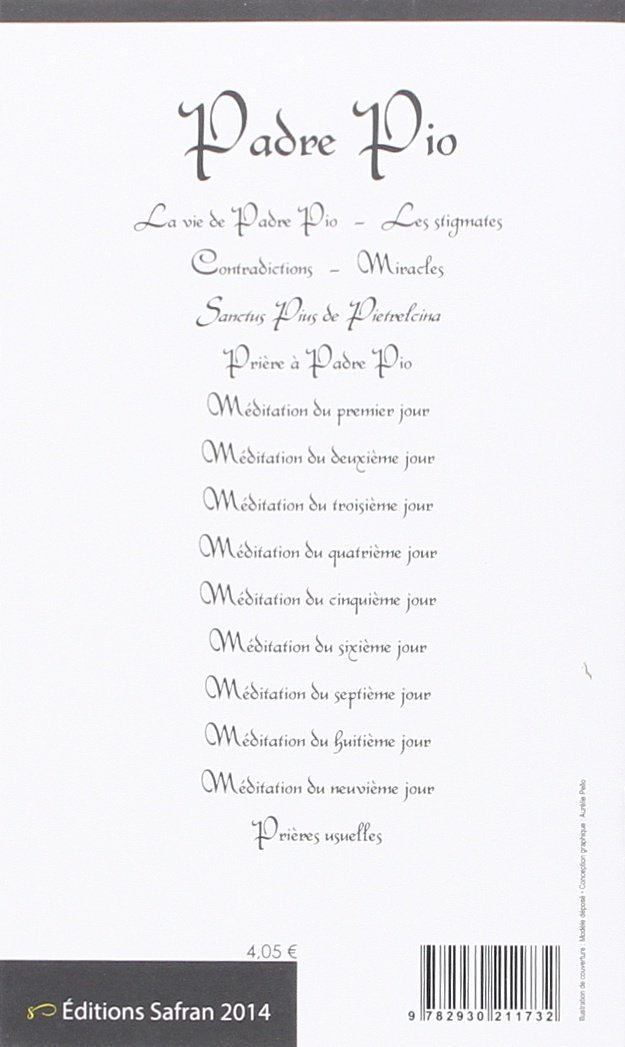 Padre Pio
La vie de Padre Pio – Les stigmates
Contradictions – Miracles
Sanctus Pius de Pietrelcina
Prière à Padre Pio
Méditation du premier jour
Méditation du deuxième jour
Méditation du troisième jour
Méditation du quatrième jour
Méditation du cinquième jour
Méditation du sixième jour
Méditation du septième jour
Méditation du huitième jour
Méditation du neuvième jour
Prières usuelles
4,05 €
Éditions Safran 2014
9 782930 211732
Illustration de couverture : Modèle déposé - Conception graphique : Aurélie Pello